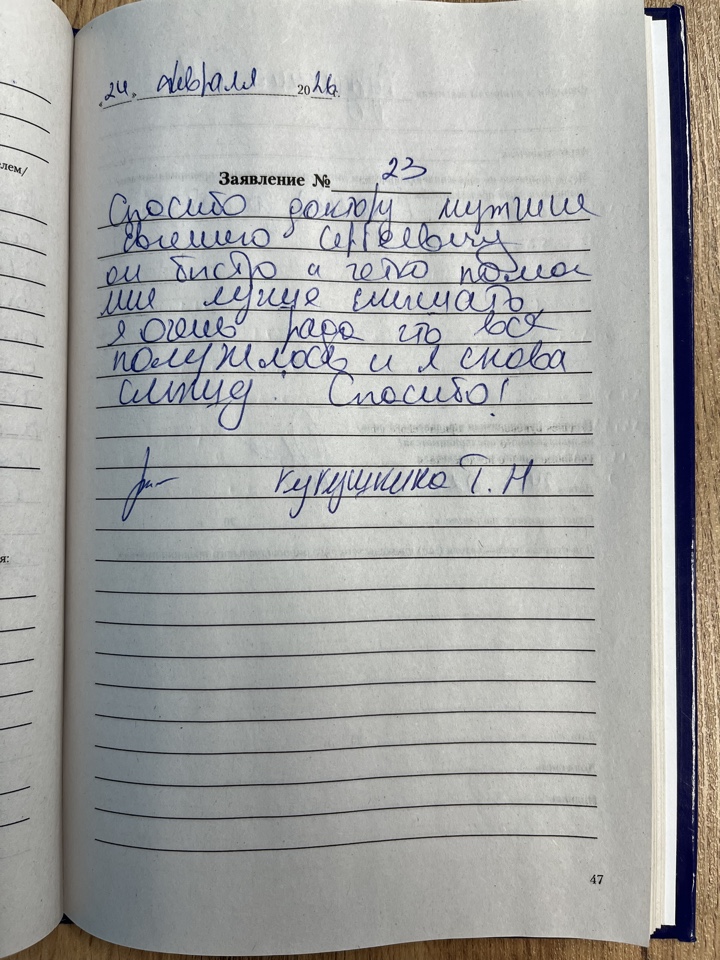 "24" февраля 2026г.
Заявление № 23
Спосибо доктору мужчине
Евгениего Сергеевичу
он бистро и четко помог
мне лучше слишать,
я очень рада что всё
получилось и я снова
слишу. Спосибо!
Кукушкина Т. Н
лем/
я:
47